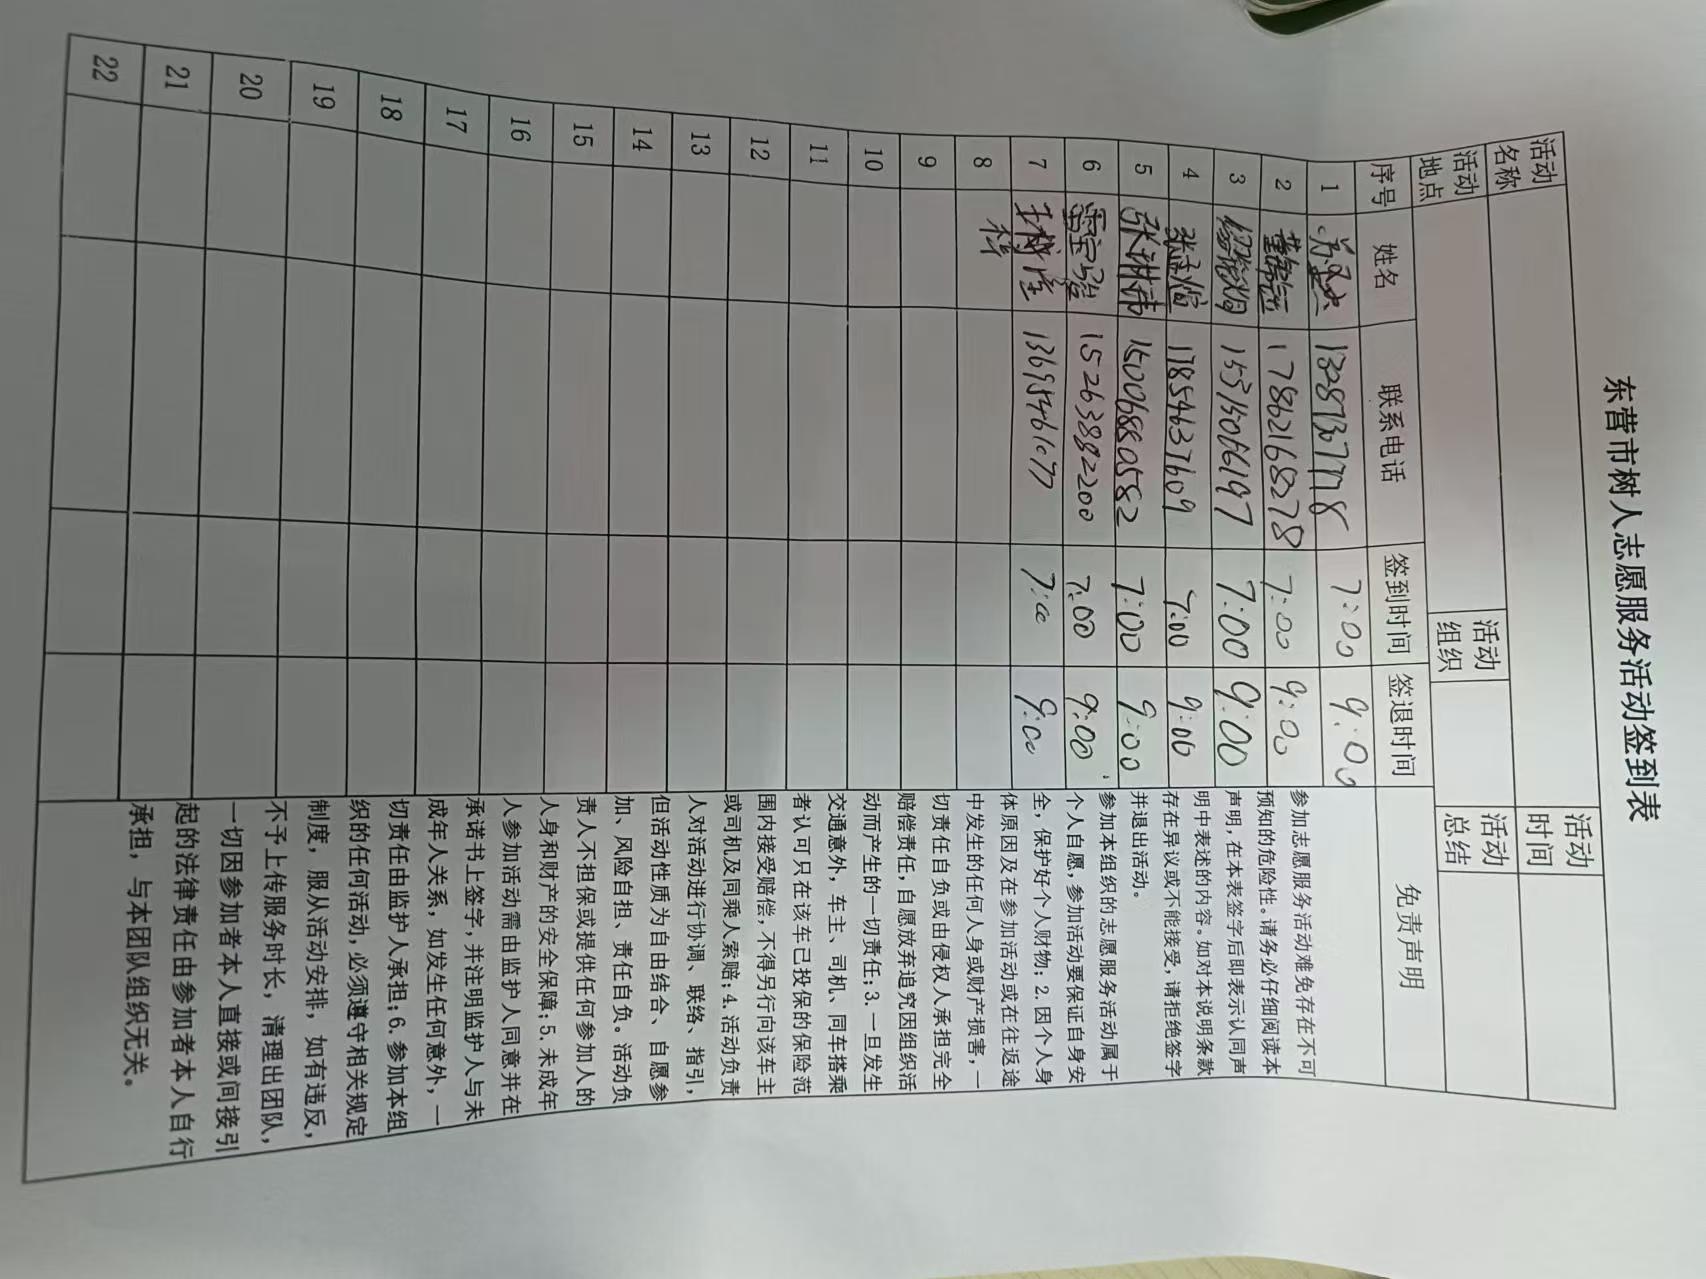 东营市树人志愿服务活动签到表
活动名称 活动时间
活动地点 活动组织 活动总结
序号 姓名 联系电话 签到时间 签退时间 免责声明
1 7:00 9:00
2 17862168278 7:00 9:00
3 15315066197 7:00 9:00
4 张孟煊 17854637609 7:00 9:00
5 张琳菲 15006880582 7:00 9:00
6 15263882200 7:00 9:00
7 7:00 9:00
8
9
10
11
12
13
14
15
16
17
18
19
20
21
22
参加志愿服务活动难免存在不可
预知的危险性。请务必仔细阅读本
声明，在本表签字后即表示认同声
明中表述的内容。如对本说明条款
存在异议或不能接受，请拒绝签字
并退出活动。
参加本组织的志愿服务活动属于
个人自愿，参加活动要保证自身安
全，保护好个人财物；2.因个人身
体原因及在参加活动或在往返途
中发生的任何人身或财产损害，一
切责任自负或由侵权人承担完全
赔偿责任，自愿放弃追究因组织活
动而产生的一切责任；3.一旦发生
交通意外，车主、司机、同车搭乘
者认可只在该车已投保的保险范
围内接受赔偿，不得另行向该车主
或司机及同乘人索赔；4.活动负责
人对活动进行协调、联络、指引，
但活动性质为自由结合、自愿参
加、风险自担、责任自负。活动负
责人不担保或提供任何参加人的
人身和财产的安全保障。5.未成年
人参加活动需由监护人同意并在
承诺书上签字，并注明监护人与未
成年人关系，如发生任何意外，一
切责任由监护人承担；6.参加本组
织的任何活动，必须遵守相关规定
制度，服从活动安排，如有违反，
不予上传服务时长，清理出团队，
一切因参加者本人直接或间接引
起的法律责任由参加者本人自行
承担，与本团队组织无关。